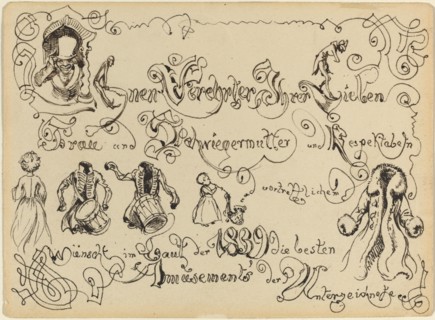 Ihnen Verehrter, Ihrer Lieben
Frau und Schwiegermutter und Respektabeln
vortrefflichen
Wünscht im Lauf der 1889 die besten
Amusements der Unterzeichnete